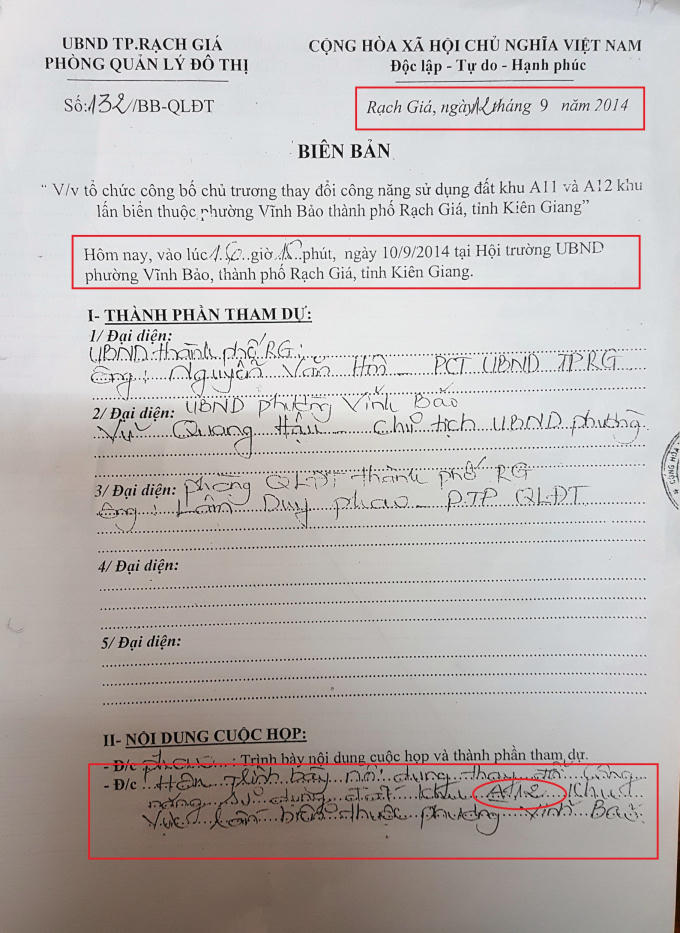 UBND TP.RẠCH GIÁ
PHÒNG QUẢN LÝ ĐÔ THỊ
CỘNG HÒA XÃ HỘI CHỦ NGHĨA VIỆT NAM
Độc lập - Tự do - Hạnh phúc
Số:132/BB-QLĐT
Rạch Giá, ngày 12 tháng 9 năm 2014
BIÊN BẢN
“ V/v tổ chức công bố chủ trương thay đổi công năng sử dụng đất khu A11 và A12 khu
lấn biển thuộc phường Vĩnh Bảo thành phố Rạch Giá, tỉnh Kiên Giang”
Hôm nay, vào lúc giờ phút, ngày 10/9/2014 tại Hội trường UBND
phường Vĩnh Bảo, thành phố Rạch Giá, tỉnh Kiên Giang.
I- THÀNH PHẦN THAM DỰ:
1/ Đại diện:
UBND thành phố RG:
Ông: Nguyễn Văn Hôn - PCT UBND TPRG
2/ Đại diện: UBND phường Vĩnh Bảo
Vũ Quang Hậu - Chủ tịch UBND phường
3/ Đại diện: phòng QLĐT thành phố RG
Ông: Lâm Duy phao - PTP QLĐT
4/ Đại diện:
5/ Đại diện:
II- NỘI DUNG CUỘC HỌP:
- Đ/c phao : Trình bày nội dung cuộc họp và thành phần tham dự.
- Đ/c Hôn trình bày nội dung thay đổi công
năng sử dụng đất khu A12 khu
vực lấn biển thuộc phường Vĩnh Bảo.
CỘNG HÒA